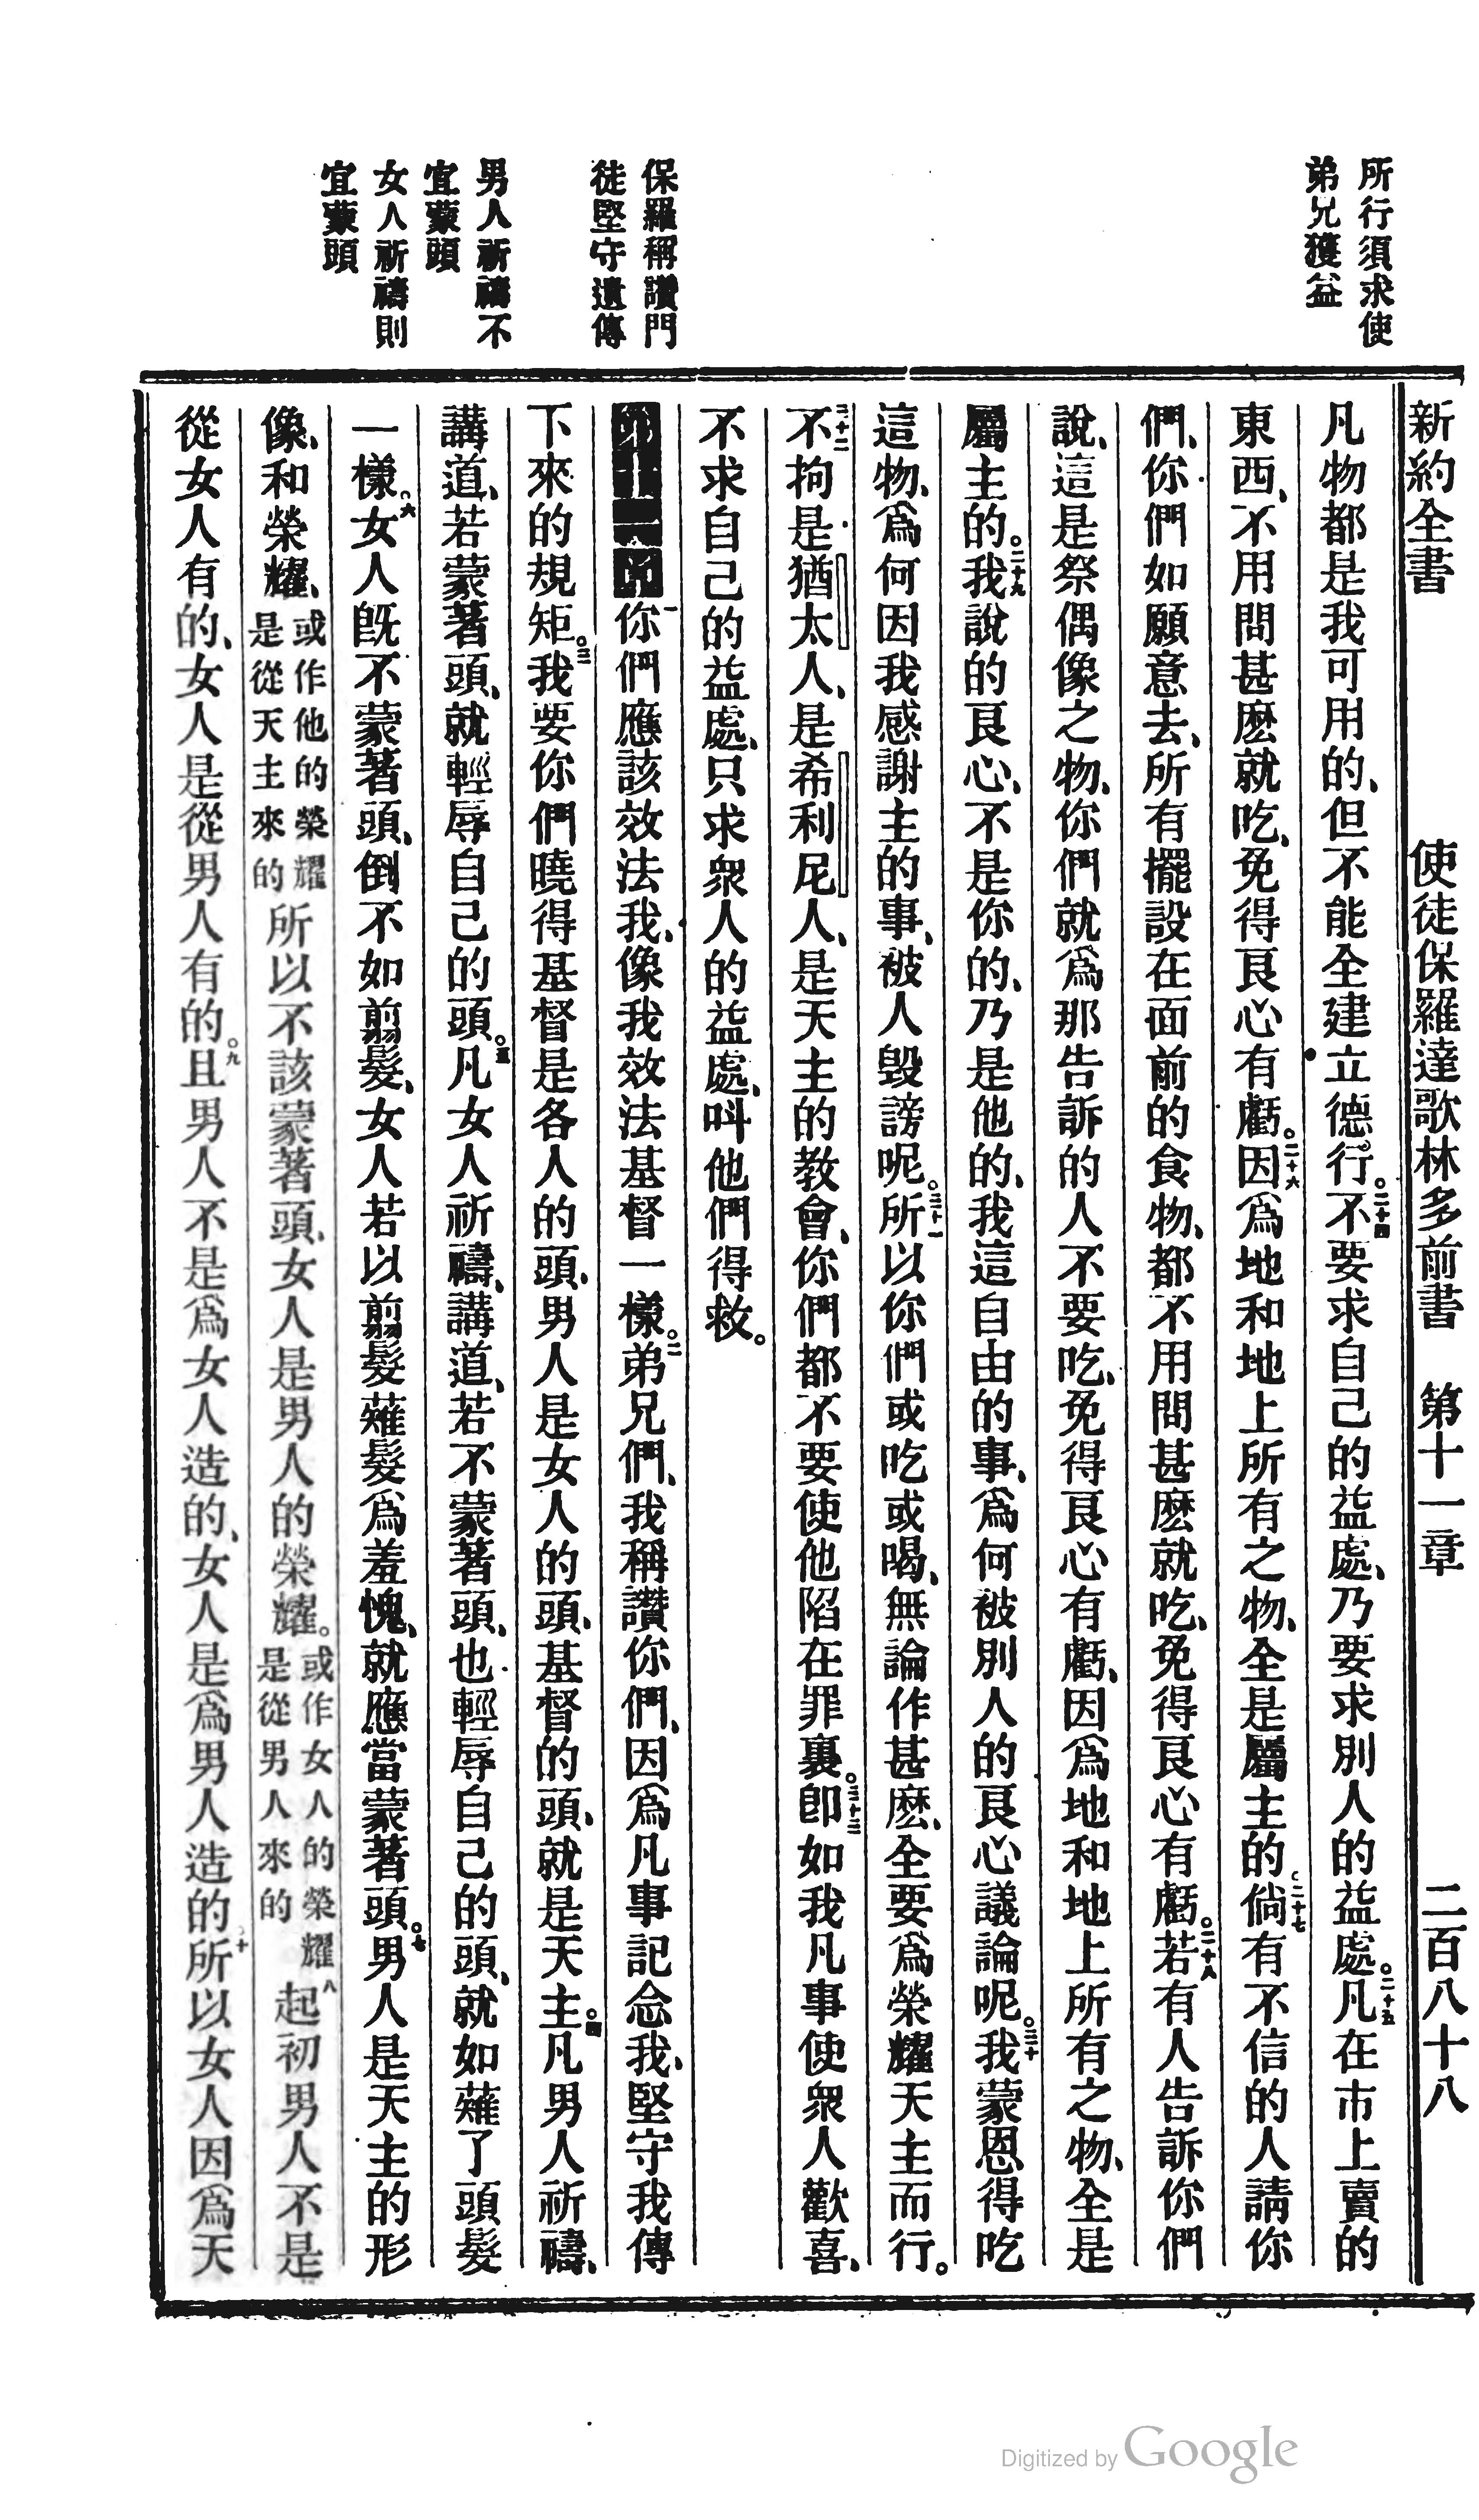 新約全書 使徒保羅達歌林多前書 第十一章 二百八十八
所行須求使
弟兄獲益
保羅稱讚門
徒堅守遺傳
男人祈禱不
宜蒙頭
女人祈禱則
宜蒙頭
凡物都是我可用的、但不能全建立德行。二十四不要求自己的益處、乃要求別人的益處。二十五凡在市上賣的
東西、不用問甚麽就吃、免得良心有虧。二十六因爲地和地上所有之物、全是屬主的。二十七倘有不信的人請你
們、你們如願意去、所有擺設在面前的食物、都不用問甚麽就吃、免得良心有虧。二十八若有人告訴你們
說、這是祭偶像之物、你們就爲那告訴的人不要吃、免得良心有虧、因爲地和地上所有之物、全是
屬主的。二十九我說的良心、不是你的、乃是他的、我這自由的事、爲何被別人的良心議論呢。三十我蒙恩得吃
這物、爲何因我感謝主的事、被人毀謗呢。三十一所以你們或吃或喝、無論作甚麽、全要爲榮耀天主而行。
三十二不拘是猶太人、是希利尼人、是天主的教會、你們都不要使他陷在罪裏。三十三卽如我凡事使衆人歡喜、
不求自己的益處、只求衆人的益處、呌他們得救。
一你們應該效法我、像我效法基督一樣。二弟兄們、我稱讚你們、因爲凡事記念我、堅守我傳
下來的規矩。三我要你們曉得基督是各人的頭、男人是女人的頭、基督的頭、就是天主。四凡男人祈禱、
講道、若蒙著頭、就輕辱自己的頭。五凡女人祈禱、講道、若不蒙著頭、也輕辱自己的頭、就如薙了頭髮
一樣。六女人旣不蒙著頭、倒不如剪髮、女人若以剪髮薙髮爲羞愧、就應當蒙著頭。七男人是天主的形
像、和榮耀、或作他的榮耀是從天主來的所以不該蒙著頭、女人是男人的榮耀。或作女人的榮耀是從男人來的八起初男人不是
從女人有的、女人是從男人有的。九且男人不是爲女人造的、女人是爲男人造的。十所以女人因爲天
Digitized by Google